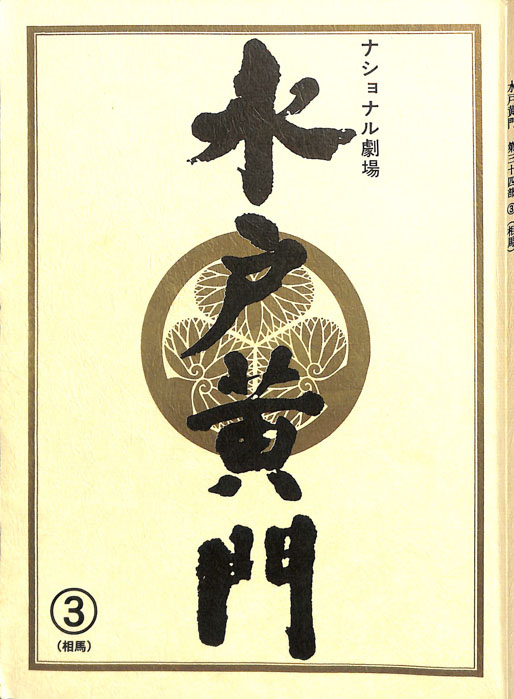 ナショナル劇場
水戸黄門
③
(相馬)
水戸黄門 第三十四部 ③ (相馬)